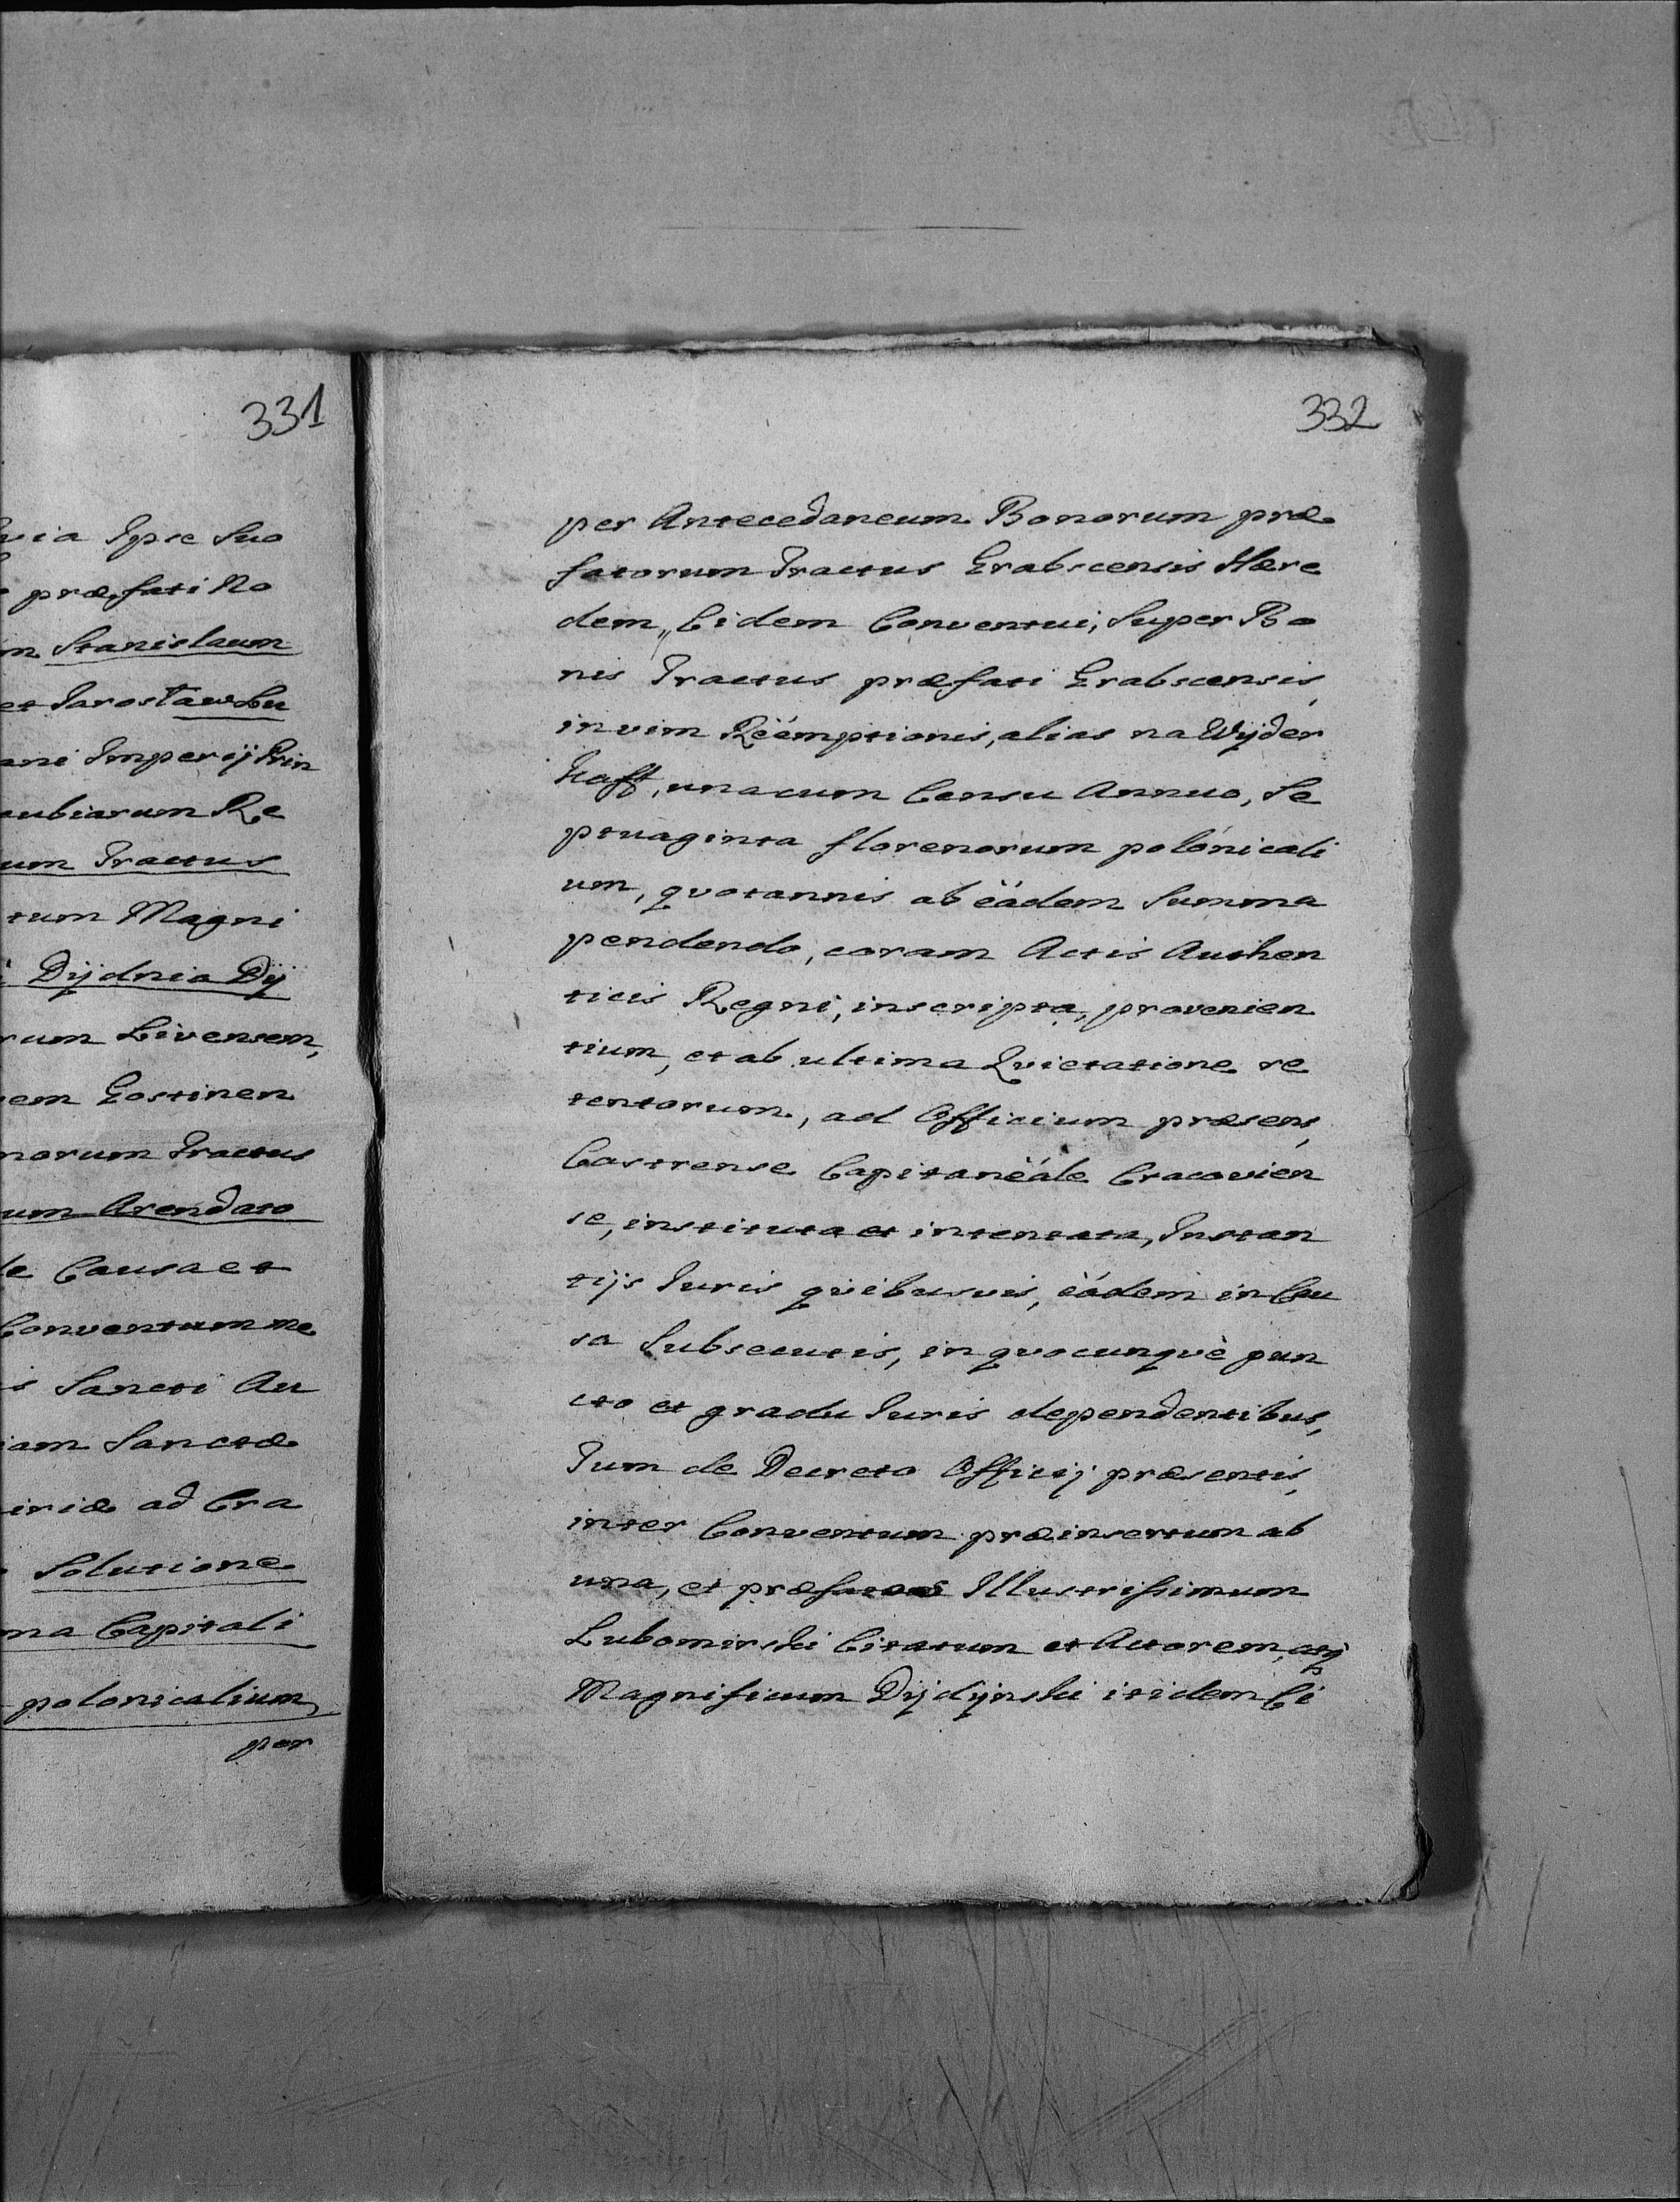 331
via Ipse Suo
præfati No
m Stanislaum
et Jarosław Lu
ani Imperij Prin
cubiarum Re
um Tractus
tum Magni
Dÿdnia Dÿ
rum Livensem,
em Gostinen
norum Tractus
um Arendato
le Causa et
Conventum me
is Sancti Au
iam Sanctæ
iriæ ad Cra
Solutione
ma Capitali
polonicalium
per
332
per Antecedaneum Bonorum præ
fatorum Tractus Grabscensis Hære
dem, Eidem Conventui, Super Bo
nis Tractus præfati Grabscensis,
in vim Rëémptionis, alias na Wÿder
kaff, unacum Censu Annuo, Se
ptuaginta florenorum polónicali
um, qvotannis ab ëâdem Summa
pendendo, coram Actis Authen
ticis Regni, inscripta, provenien
tium, et ab ultima Qvietatione re
tentorum, ad Officium præsens,
Castrense Capitanëále Cracovien
se, instituta et intentata, Instan
tijs Iuris qvibusvis, ëádem in Cau
sa Subsecutis, in qvocunqvè pun
cto et gradu Iuris dependentibus,
Tum de Decreto Officij præsentis,
inter Conventum præinsertum ab
una, et præfatos Illustrissimum
Lubomirski Citatum et Actorem, atq
Magnificum Dÿdÿnski itidem Ci